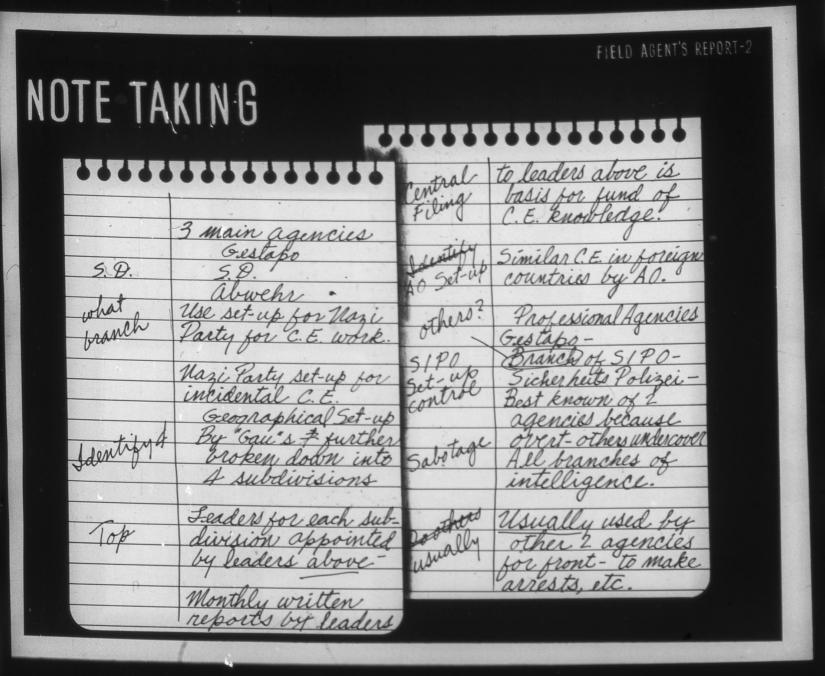 FIELD AGENT'S REPORT-2
NOTE TAKING
3 main agencies
Gestapo
S.D.
S.D.
Abwehr
what
branch
Use set-up for Nazi
Party for C.E. work.
Nazi Party set-up for
incidental C.E.
Geographical Set-up
Identify 4
By "Gau"s & further
broken down into
4 subdivisions
Top
Leaders for each sub-
division appointed
by leaders above-
Monthly written
reports by leaders
Central
Filing
to leaders above is
basis for fund of
C.E. knowledge.
Identify
AO Set-up
Similar C.E. in foreign
countries by AO.
others?
Professional Agencies
Gestapo-
SIPO
Set-up
control
Branch of SIPO-
Sicherheits Polizei-
Best known of 2
agencies because
overt-others undercover
Sabotage
All branches of
intelligence.
Do others
usually
Usually used by
other 2 agencies
for front- to make
arrests, etc.